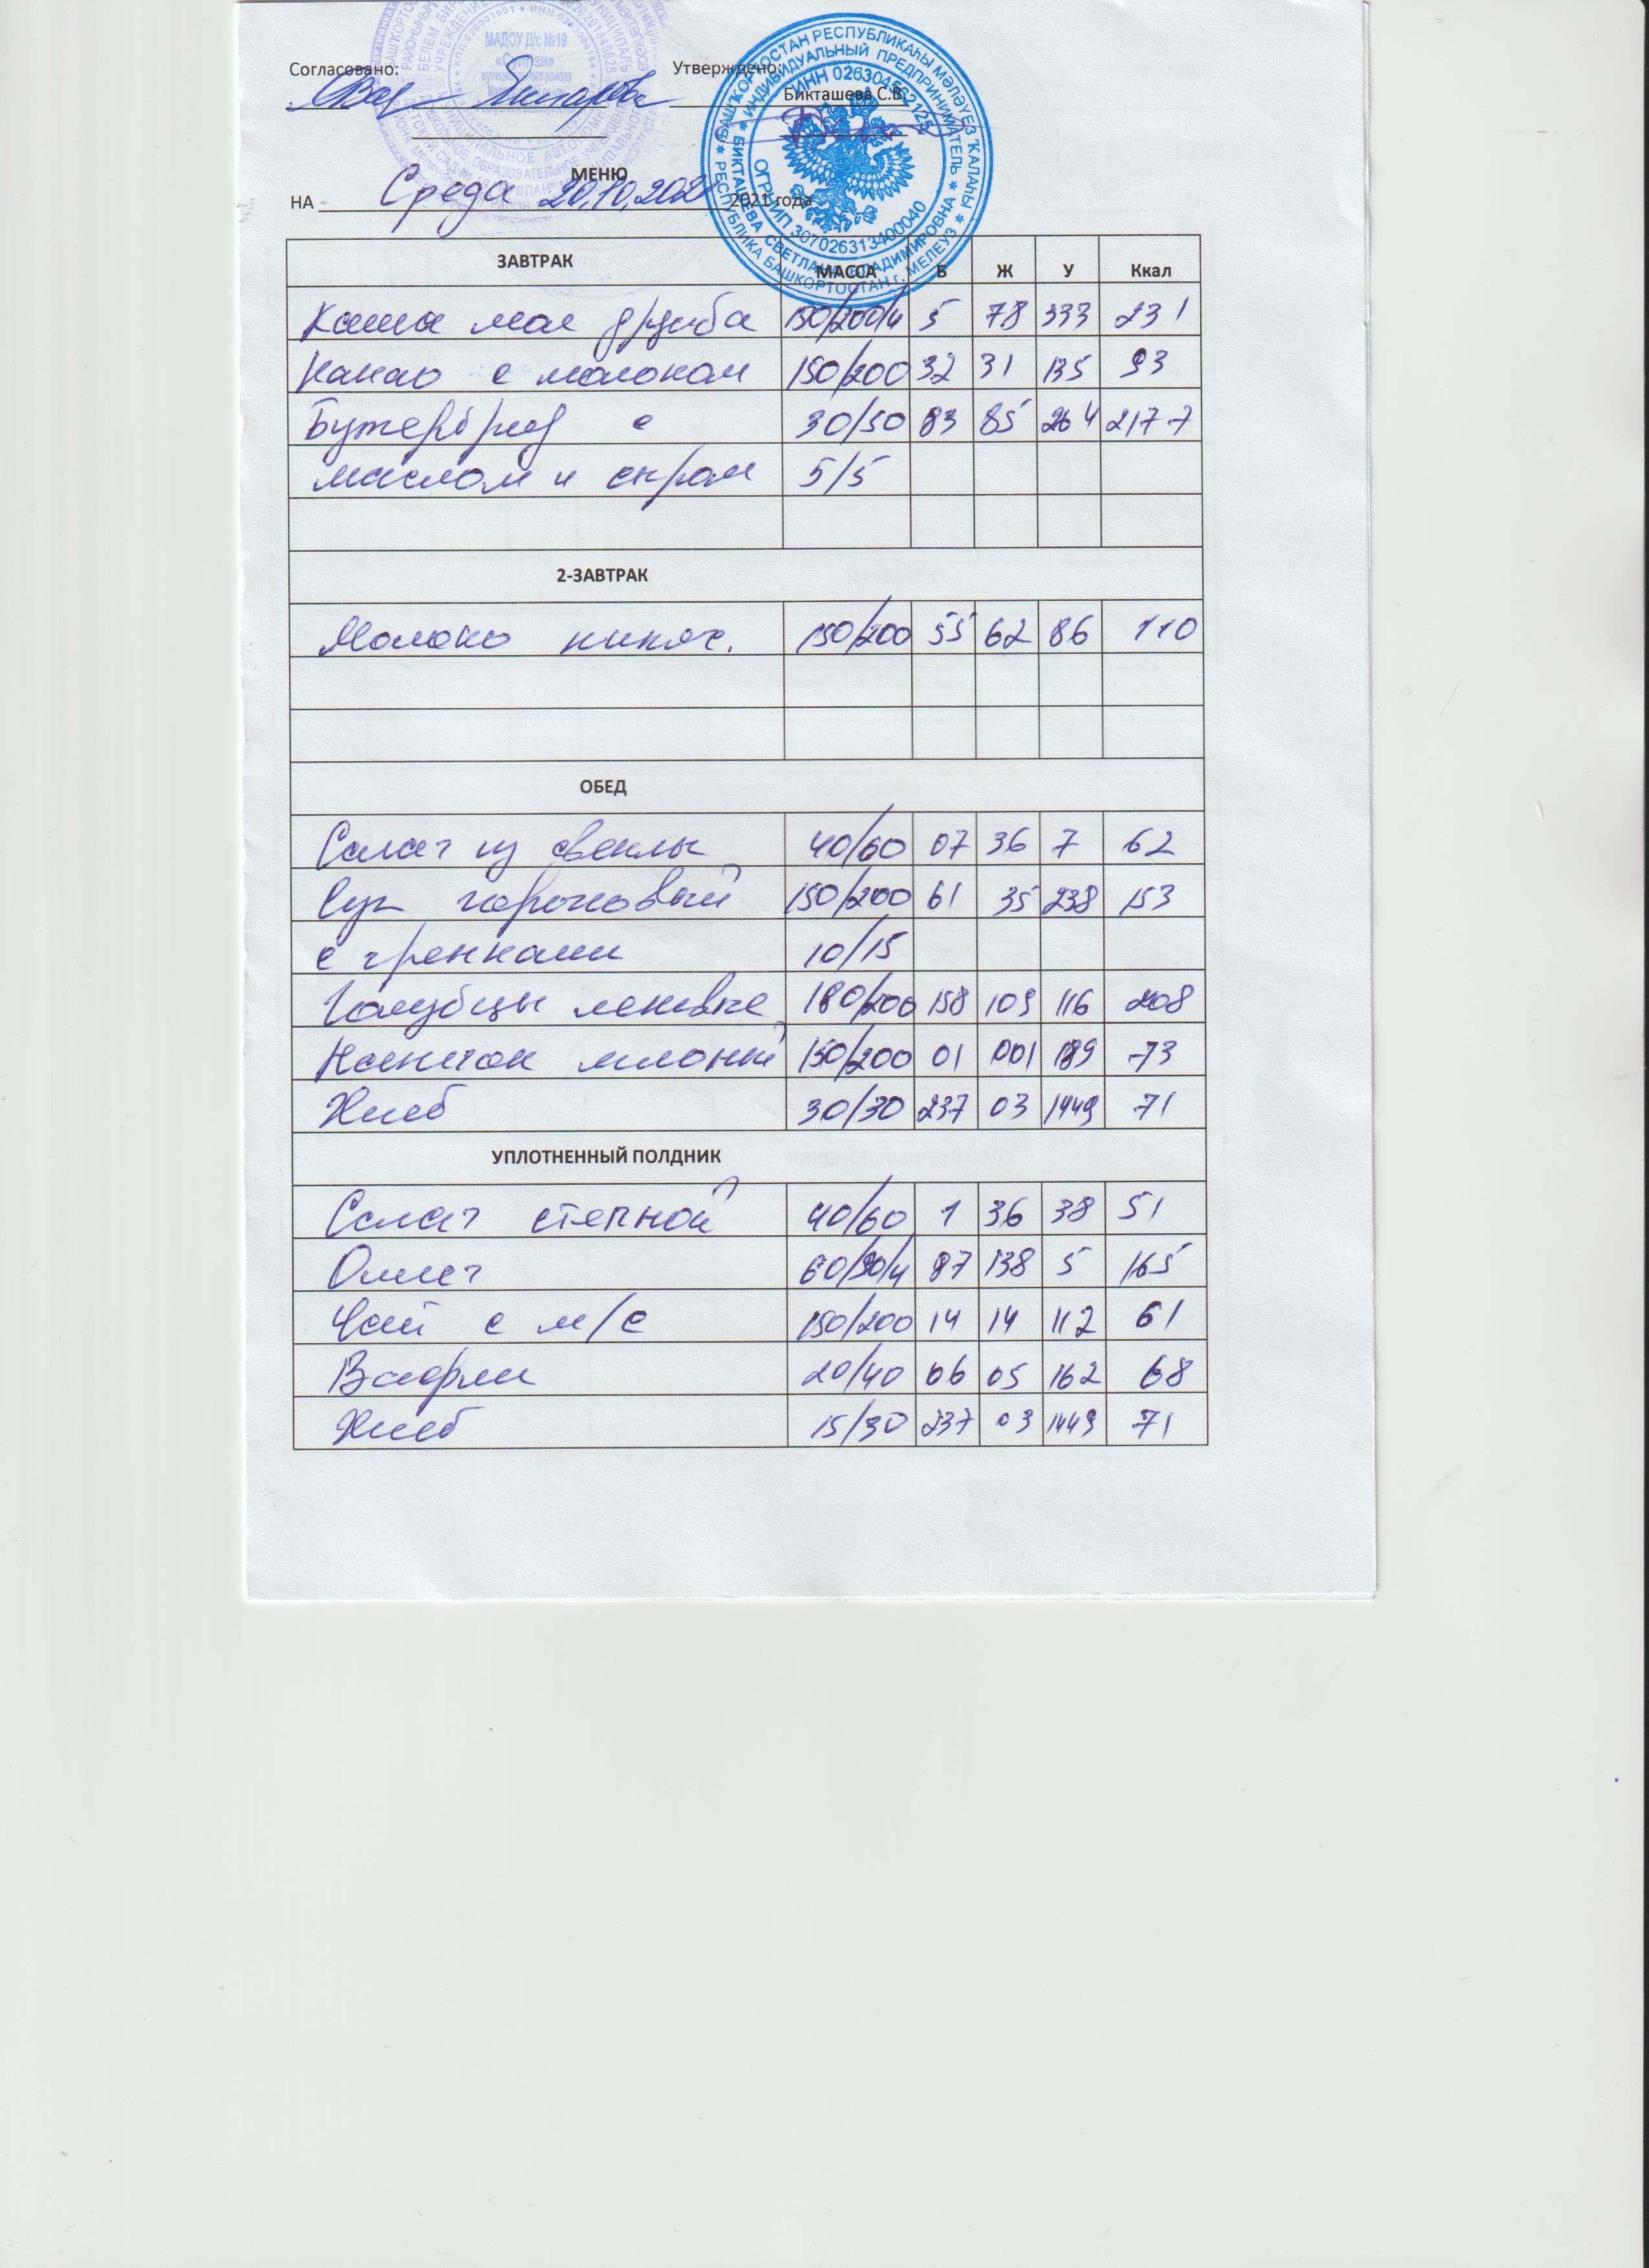 Согласовано: Утверждено:
Бикташева С.В.
МАДОУ Д/с №19
БАШҠОРТОСТАН РЕСПУБЛИКАҺЫ МӘЛӘҮЕЗ ҠАЛАҺЫ
РЕСПУБЛИКА БАШКОРТОСТАН г. МЕЛЕУЗ
ИНДИВИДУАЛЬНЫЙ ПРЕДПРИНИМАТЕЛЬ
БИКТАШЕВА СВЕТЛАНА ВЛАДИМИРОВНА
ОГРНИП 307026313400040
МЕНЮ
НА Среда 20.10.2021 2021 года
ЗАВТРАК МАССА Б Ж У Ккал
Каша мол дружба 150/200/4 5 78 333 231
Какао с молоком 150/200 32 31 135 93
Бутерброд с 30/50 83 85 264 217.7
маслом и сыром 5/5
2-ЗАВТРАК
Молоко кипяч. 150/200 55 62 86 110
ОБЕД
Салат из свеклы 40/60 07 36 7 62
Суп гороховый 150/200 61 35 238 153
с гренками 10/15
Голубцы ленивые 180/200 158 109 116 208
Напиток 150/200 01 001 189 73
Хлеб 30/30 237 03 1449 71
УПЛОТНЕННЫЙ ПОЛДНИК
Салат степной 40/60 1 36 38 51
Омлет 60/90/4 87 138 5 165
Чай с м/с 150/200 14 14 112 61
Вафли 20/40 06 05 162 68
Хлеб 15/30 237 03 1449 71